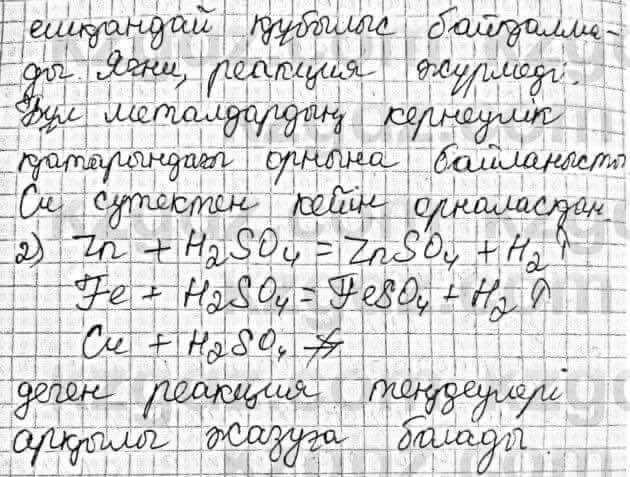 ешқандай құбылыс байқалма-
ды. Яғни, реакция жүрмеді.
Бұл металдардың кернеулік
қатарындағы орнына байланысты
Cu сутектен кейін орналасқан.
2) Zn + H₂SO₄ = ZnSO₄ + H₂↑
Fe + H₂SO₄ = FeSO₄ + H₂↑
Cu + H₂SO₄ ↛
деген реакция теңдеулері
арқылы жазуға болады.